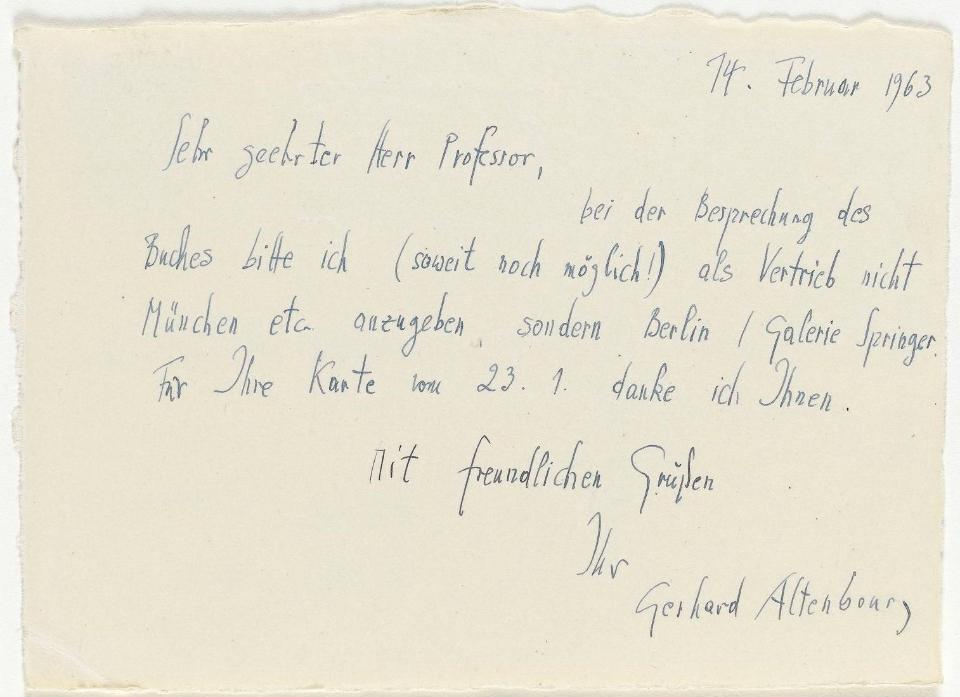 14. Februar 1963
Sehr geehrter Herr Professor,
bei der Besprechung des
Buches bitte ich (soweit noch möglich!) als Vertrieb nicht
München etc. anzugeben sondern Berlin / Galerie Springer.
Für Ihre Karte vom 23. 1. danke ich Ihnen.
Mit freundlichen Grüßen
Ihr
Gerhard Altenbourg